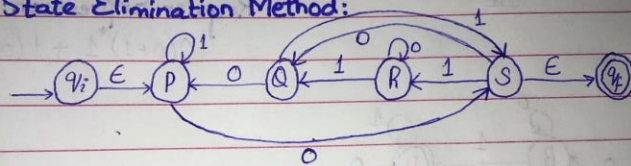 State Elimination Method:
1
1 0 0
qi ε P 0 Q 1 R 1 S ε qf
0